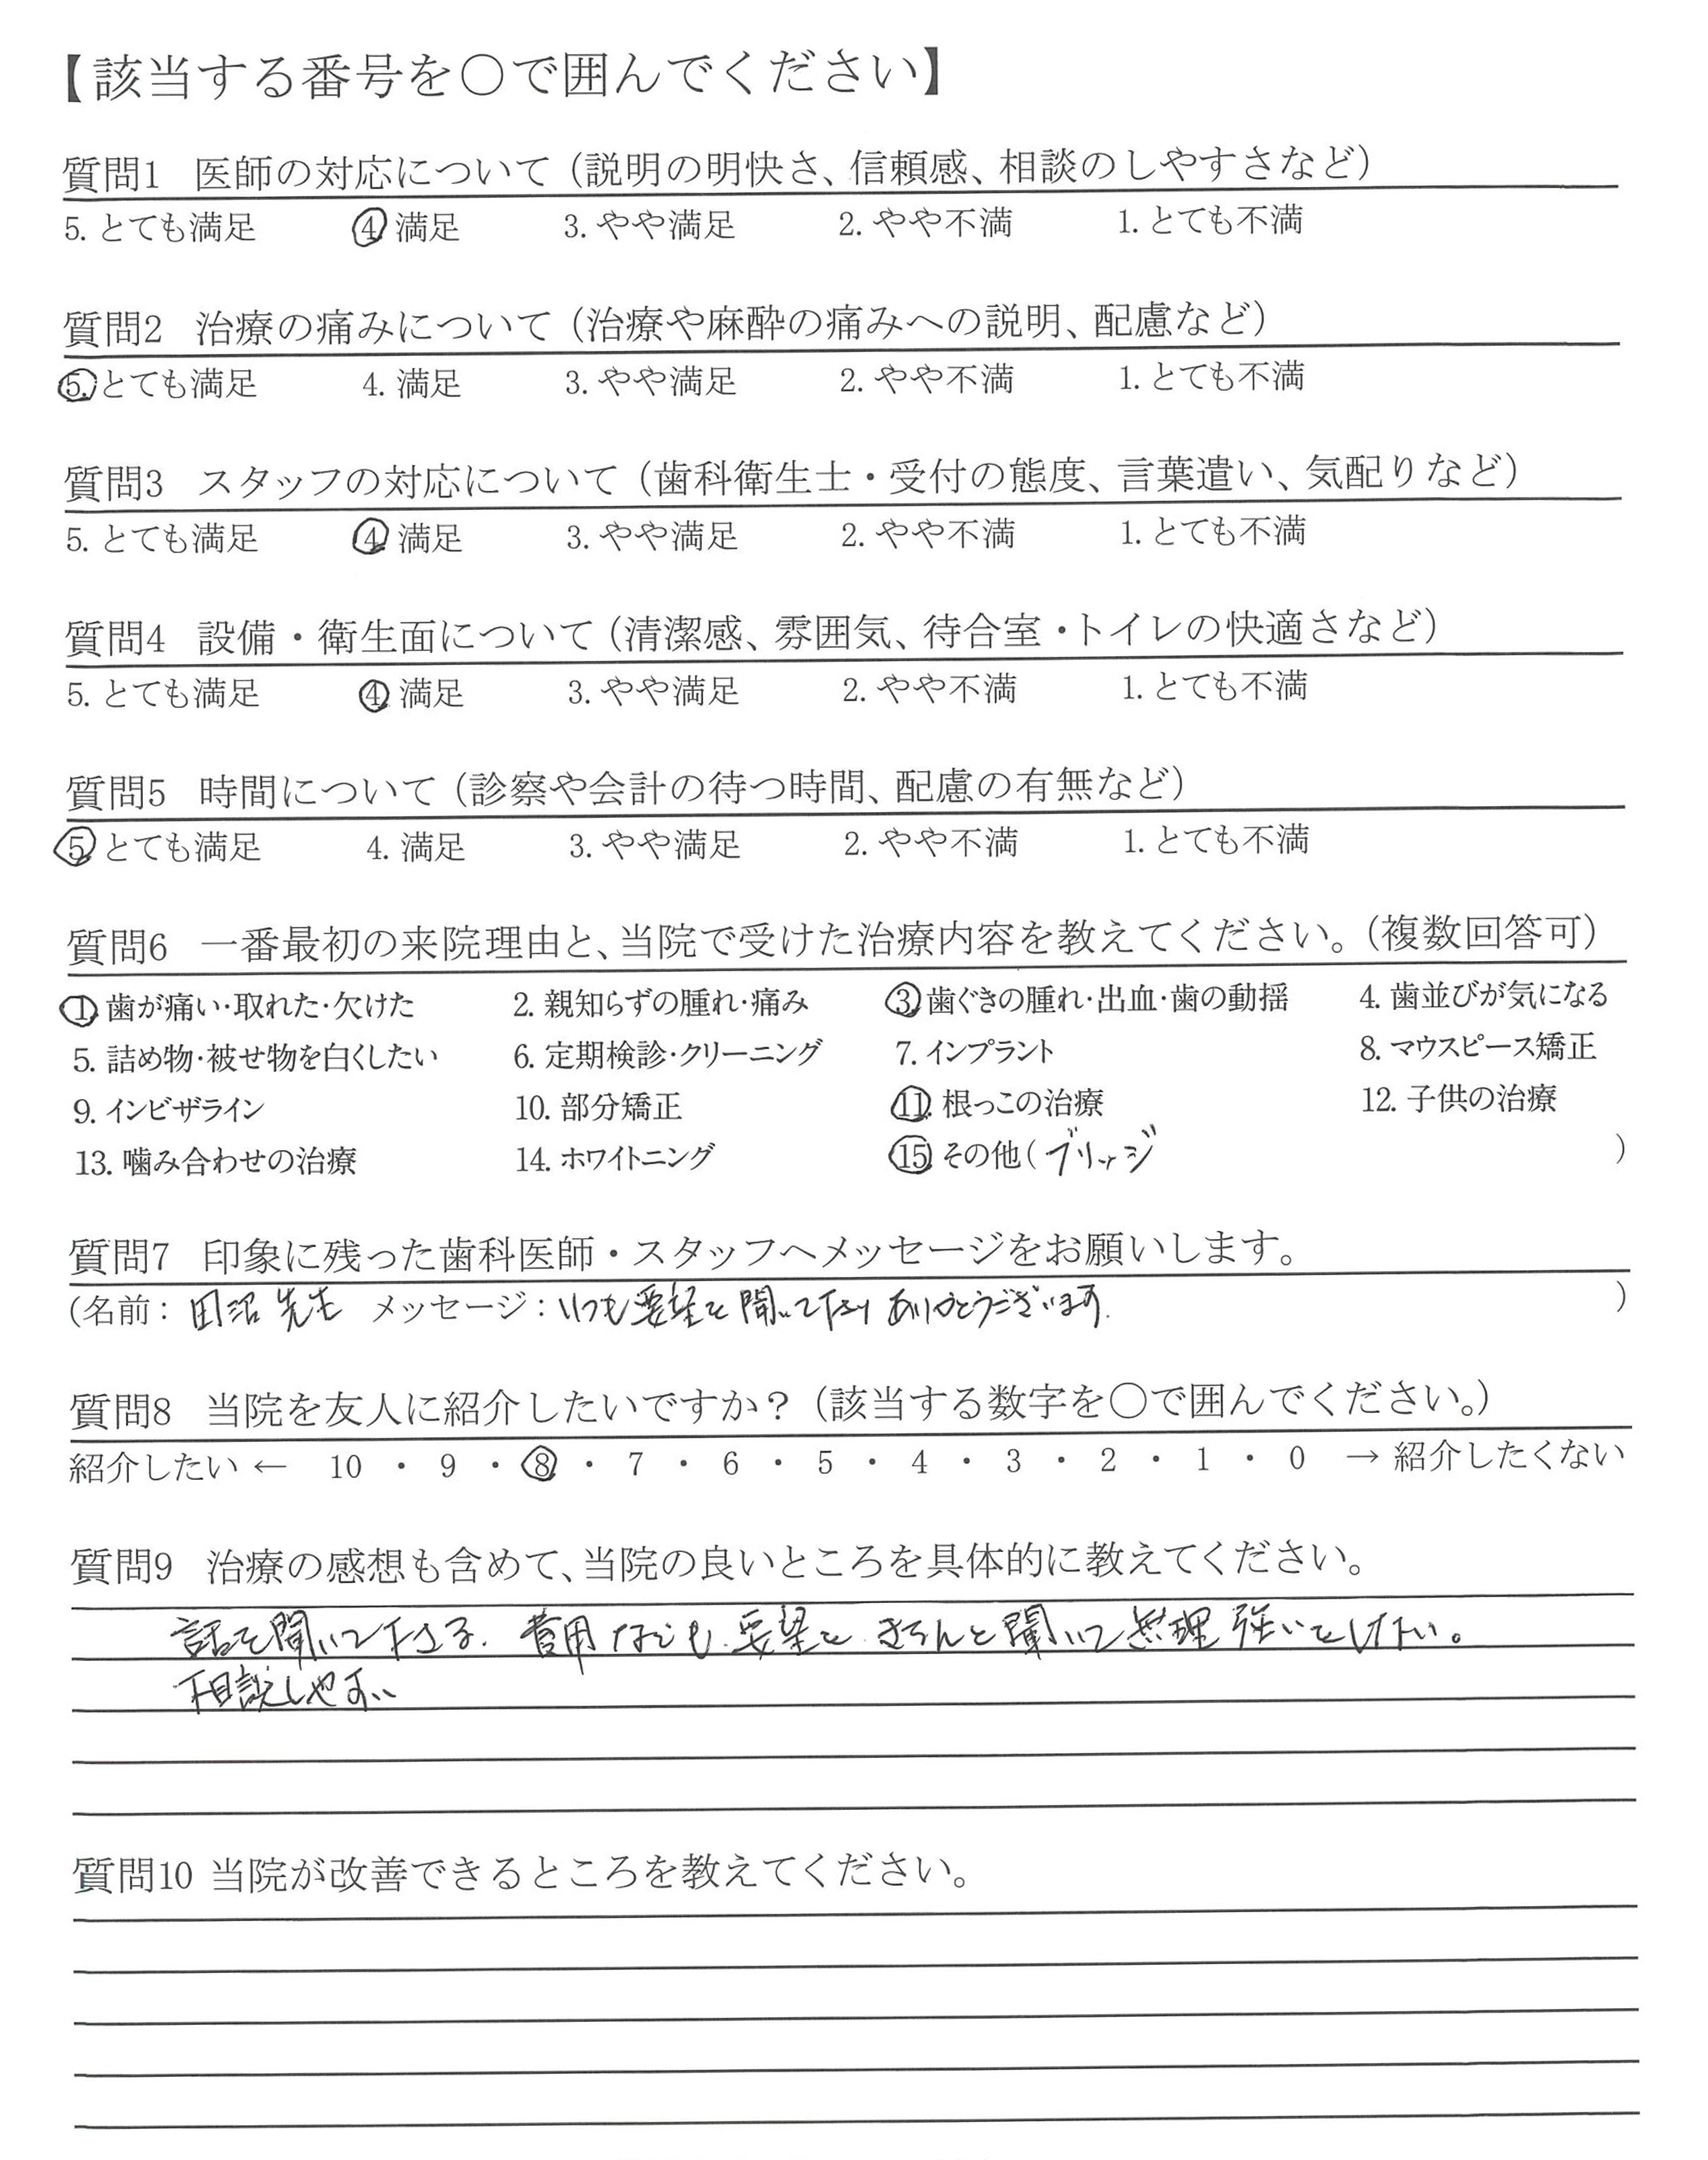 【該当する番号を〇で囲んでください】
質問1 医師の対応について（説明の明快さ、信頼感、相談のしやすさなど）
5. とても満足 4. 満足 3. やや満足 2. やや不満 1. とても不満
質問2 治療の痛みについて（治療や麻酔の痛みへの説明、配慮など）
5. とても満足 4. 満足 3. やや満足 2. やや不満 1. とても不満
質問3 スタッフの対応について（歯科衛生士・受付の態度、言葉遣い、気配りなど）
5. とても満足 4. 満足 3. やや満足 2. やや不満 1. とても不満
質問4 設備・衛生面について（清潔感、雰囲気、待合室・トイレの快適さなど）
5. とても満足 4. 満足 3. やや満足 2. やや不満 1. とても不満
質問5 時間について（診察や会計の待つ時間、配慮の有無など）
5. とても満足 4. 満足 3. やや満足 2. やや不満 1. とても不満
質問6 一番最初の来院理由と、当院で受けた治療内容を教えてください。（複数回答可）
1. 歯が痛い・取れた・欠けた 2. 親知らずの腫れ・痛み 3. 歯ぐきの腫れ・出血・歯の動揺 4. 歯並びが気になる
5. 詰め物・被せ物を白くしたい 6. 定期検診・クリーニング 7. インプラント 8. マウスピース矯正
9. インビザライン 10. 部分矯正 11. 根っこの治療 12. 子供の治療
13. 噛み合わせの治療 14. ホワイトニング 15. その他（ブリッジ）
質問7 印象に残った歯科医師・スタッフへメッセージをお願いします。
（名前：田沼先生 メッセージ：いつも要望を聞いて下さりありがとうございます.）
質問8 当院を友人に紹介したいですか？（該当する数字を〇で囲んでください。）
紹介したい ← 10 ・ 9 ・ 8 ・ 7 ・ 6 ・ 5 ・ 4 ・ 3 ・ 2 ・ 1 ・ 0 → 紹介したくない
質問9 治療の感想も含めて、当院の良いところを具体的に教えてください。
話を聞いて下さる. 費用なども.要望を きちんと聞いて無理強いをしない。
相談しやすい
質問10 当院が改善できるところを教えてください。